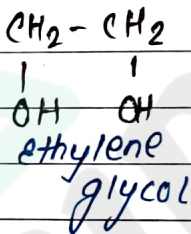 CH2 - CH2
| |
OH OH
ethylene
glycol